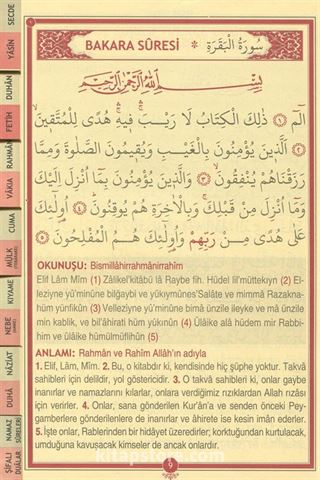 BAKARA SÛRESİ * سُورَةُ الْبَقَرَةِ
بِسْمِ اللّٰهِ الرَّحْمٰنِ الرَّحِيمِ
الٓمٓ ﴿١﴾ ذٰلِكَ الْكِتَابُ لَا رَيْبَ ۛ فِيهِ ۛ هُدًى لِلْمُتَّقِينَ
﴿٢﴾ اَلَّذِينَ يُؤْمِنُونَ بِالْغَيْبِ وَيُقِيمُونَ الصَّلٰوةَ وَمِمَّا
رَزَقْنَاهُمْ يُنْفِقُونَ ﴿٣﴾ وَالَّذِينَ يُؤْمِنُونَ بِمَٓا اُنْزِلَ اِلَيْكَ
وَمَٓا اُنْزِلَ مِنْ قَبْلِكَ وَبِالْاٰخِرَةِ هُمْ يُوقِنُونَ ﴿٤﴾ اُو۬لٰٓئِكَ
عَلٰى هُدًى مِنْ رَبِّهِمْ وَاُو۬لٰٓئِكَ هُمُ الْمُفْلِحُونَ ﴿٥﴾
OKUNUŞU: Bismillâhirrahmânirrahîm
Elif Lâm Mîm (1) Zâlikel'kitâbü lâ Raybe fîh. Hüdel lil'müttekıyn (2) El-
lezîyne yü'minûne bilğaybi ve yükıymûnes'Salâte ve mimmâ Razakna-
hüm yünfikûn (3) Vellezîyne yü'minûne bimâ ünzile ileyke ve mâ ünzile
min kablik, ve bil'âhirati hüm yûkınûn (4) Ülâike alâ hüdem mir Rabbi-
him ve ülâike hümülmüflihûn (5)
ANLAMI: Rahmân ve Rahîm Allâh'ın adıyla
1. Elif, Lâm, Mîm. 2. Bu, o kitabdır ki, kendisinde hiç şüphe yoktur. Takvâ
sâhibleri için delildir, yol göstericidir. 3. O takvâ sahibleri ki, onlar gaybe
inanırlar ve namazlarını kılarlar, onlara verdiğimiz rızıklardan Allah rızâsı
için verirler. 4. Onlar, sana gönderilen Kur'âna ve senden önceki Pey-
gamberlere gönderilenlere de inanırlar ve âhirete ise kesin imân ederler.
5. İşte onlar, Rablerinden bir hidâyet üzeredirler; korktuğundan kurtulacak,
umduğuna kavuşacak kimseler de ancak onlardır.
9
SECDE
YÂSÎN
DUHÂN
FETİH
RAHMÂN
VÂKIA
CUMA
MÜLK
KIYAME
NEBE
NÂZİAT
DUHÂ
NAMAZ SÛRELERİ
ŞİFALI DUÂLAR